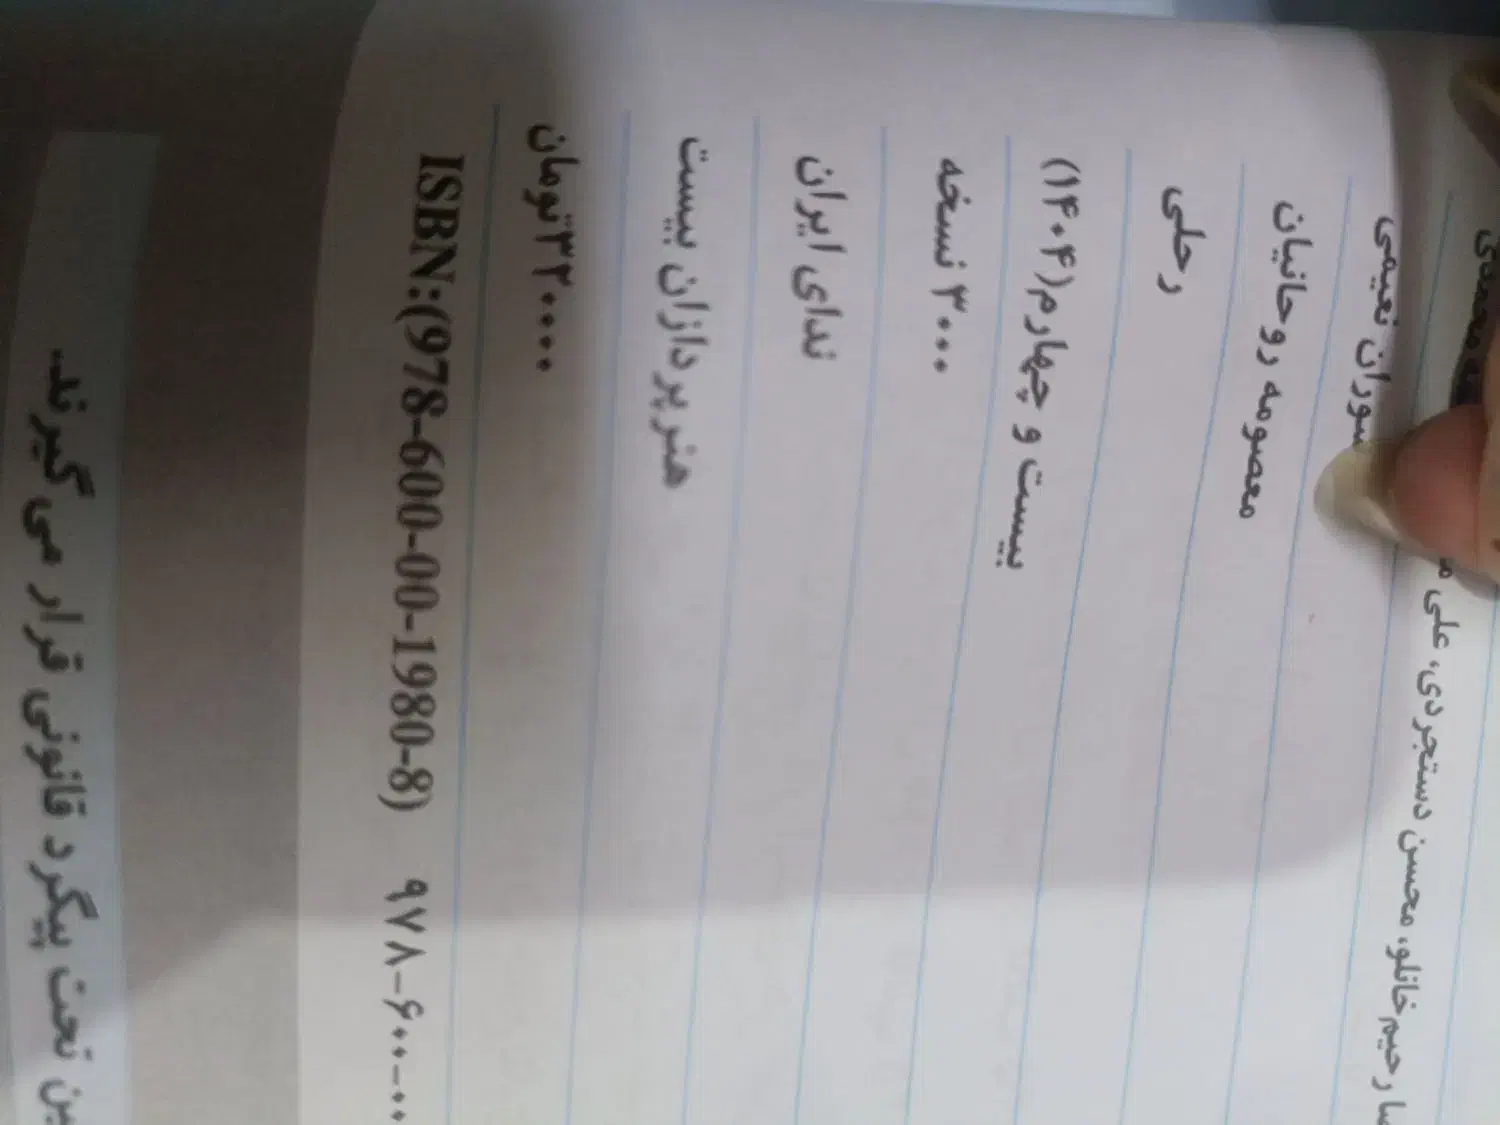 رحیم‌خانلو، محسن دستجردی، علی
سوران نعیمی
معصومه روحانیان
رحلی
بیست و چهارم(۱۴۰۴)
۳۰۰۰ نسخه
ندای ایران
هنرپردازان بیست
۳۳۰۰۰۰تومان
ISBN:(978-600-00-1980-8) ۹۷۸-۶۰۰-۰۰
تحت پیگرد قانونی قرار می‌گیرند.